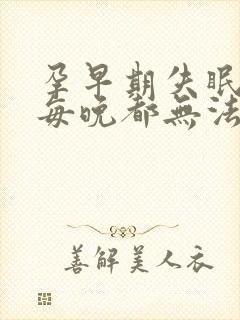 孕早期失眠
每晚都無法
善解美人衣